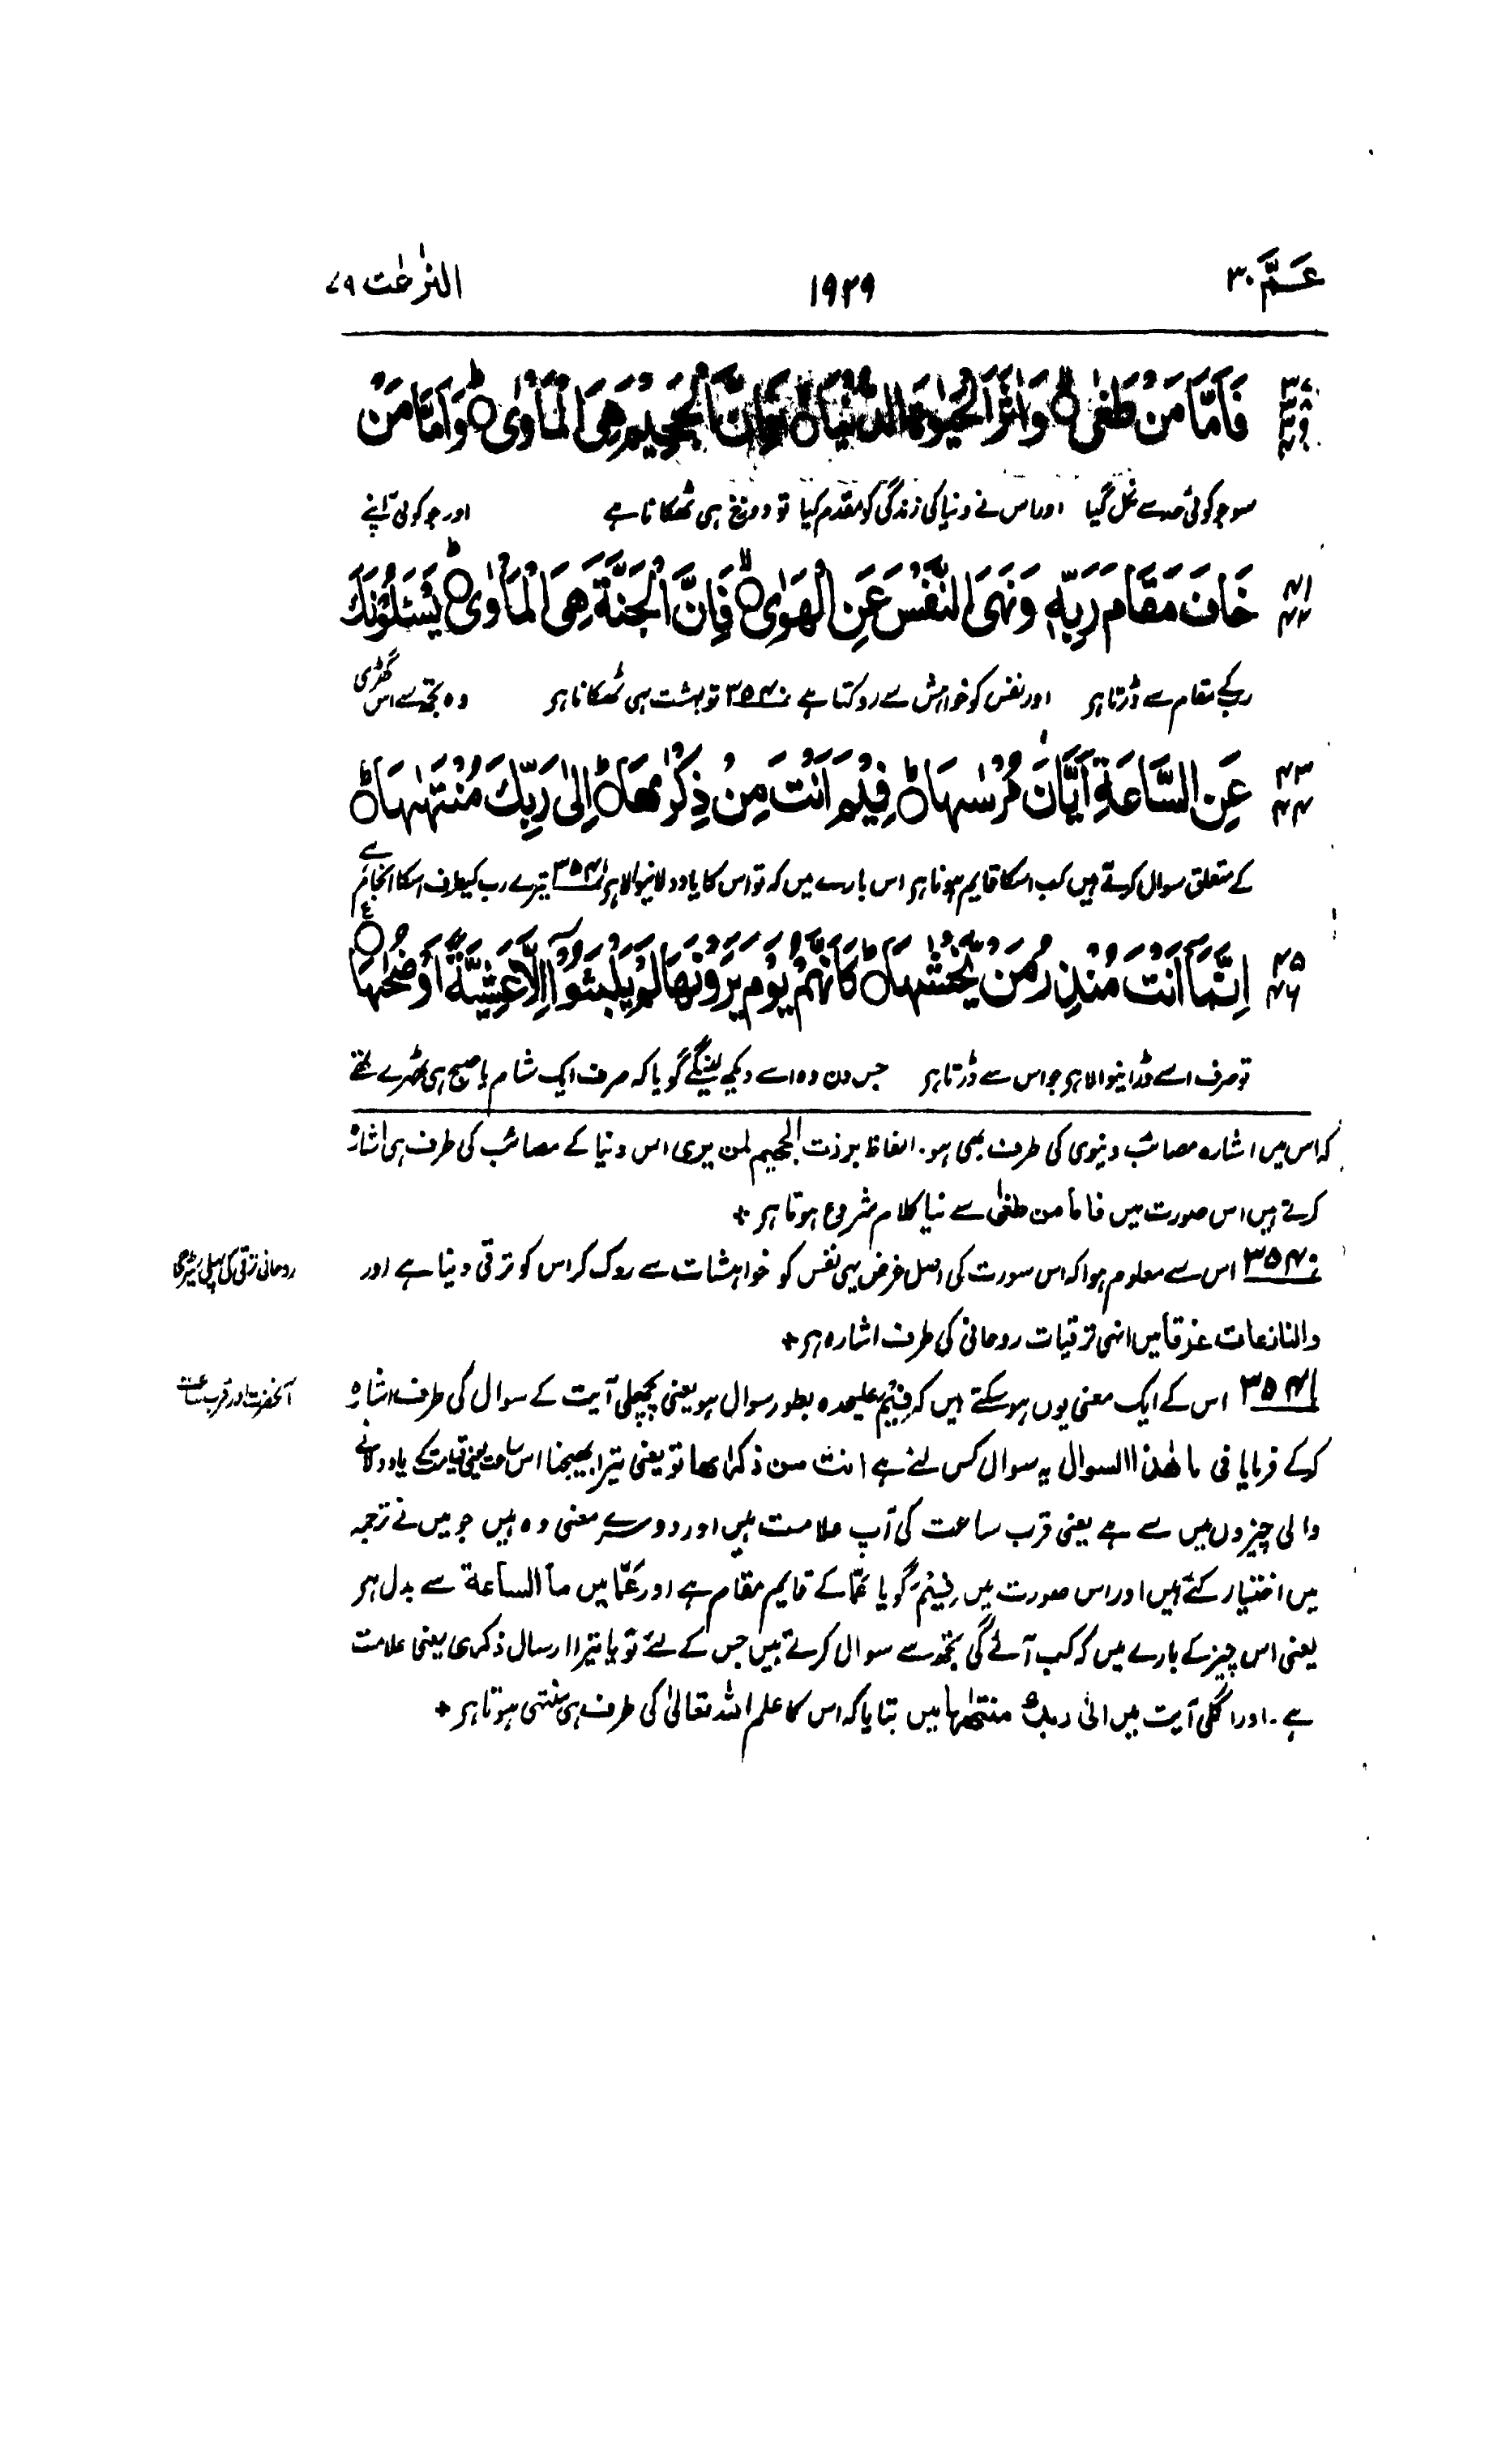 عَمَّ ۳۰
۱۹۲۹
النّٰزعٰت ۷۹
فَاَمَّا مَنْ طَغٰى ۙ وَاٰثَرَ الْحَيٰوةَ الدُّنْيَا ۙ فَاِنَّ الْجَحِيْمَ هِىَ الْمَاْوٰى ؕ وَاَمَّا مَنْ
سو جو کوئی حد سے نکل گیا اور اس نے دنیا کی زندگی کو مقدم کیا تو دوزخ ہی ٹھکانا ہے اور جو کوئی اپنے
۴۱ ۴۲
خَافَ مَقَامَ رَبِّهٖ وَنَهَى النَّفْسَ عَنِ الْهَوٰى ۙ فَاِنَّ الْجَنَّةَ هِىَ الْمَاْوٰى ؕ يَسْـَٔلُوْنَكَ
رب کے مقام سے ڈرتا ہر اور نفس کو خواہش سے روکتا ہے ۳۵۴۰ تو بہشت ہی ٹھکانا ہر وہ تجھ سے اس گھڑی
۴۳ ۴۴
عَنِ السَّاعَةِ اَيَّانَ مُرْسٰىهَا ؕ فِيْمَ اَنْتَ مِنْ ذِكْرٰىهَا ؕ اِلٰى رَبِّكَ مُنْتَهٰىهَا ؕ
کے متعلق سوال کرتے ہیں کب اسکا قایم ہونا ہر اس بارے میں کہ تو اس کا یاد دلانیوالا ہر ۳۵۴۱ تیرے رب کیطرف اسکا انجام ہے
۴۵ ۴۶
اِنَّمَاۤ اَنْتَ مُنْذِرُ مَنْ يَّخْشٰىهَا ؕ كَاَنَّهُمْ يَوْمَ يَرَوْنَهَا لَمْ يَلْبَثُوْۤا اِلَّا عَشِيَّةً اَوْ ضُحٰىهَا ع
تو صرف اسے ڈرانیوالا ہر جو اس سے ڈرتا ہر جس دن وہ اسے دیکھ لینگے گویا کہ صرف ایک شام یا صبح ہی ٹھہرے تھے
کہ اس میں اشارہ مصائب دنیوی کی طرف بھی ہو۔ الفاظ برزت الجحیم لمن یری اس دنیا کے مصائب کی طرف ہی اشارہ
کرتے ہیں اس صورت میں فاما من طغیٰ سے نیا کلام شروع ہوتا ہر +
۳۵۴۰ اس سے معلوم ہوا کہ اس سورت کی اصل غرض یہی نفس کو خواہشات سے روک کر اس کو ترقی دینا ہے اور
روحانی ترقی کی پہلی سیڑھی
والنازعات غرقا میں انہی ترقیات روحانی کی طرف اشارہ ہر +
۳۵۴۱ اس کے ایک معنی یوں ہو سکتے ہیں کہ فِیْمَ علیحدہ بطور سوال ہو یعنی پچھلی آیت کے سوال کی طرف اشارہ
آنحضرت اور قرب ساعت
کرکے فرمایا فی ما ھٰذا السوال یہ سوال کس لئے ہے انت من ذکراھا تو یعنی تیرا بھیجنا اس ساعت یعنی قیامت کے یاد دلانے
والی چیزوں میں سے ہے یعنی قرب ساعت کی آپ علامت ہیں اور دوسرے معنی وہ ہیں جو میں نے ترجمہ
میں اختیار کئے ہیں اور اس صورت میں فِیْمَ گویا عَمَّا کے قایم مقام ہے اور عَمَّا میں ما الساعة سے بدل ہر
یعنی اس چیز کے بارے میں کہ کب آئے گی تجھ سے سوال کرتے ہیں جس کے لئے تو یا تیرا ارسال ذکری یعنی علامت
ہے۔ اور اگلی آیت میں الیٰ ربک منتھٰھا میں بتایا کہ اس کا علم اللہ تعالیٰ کی طرف ہی منتہی ہوتا ہر +